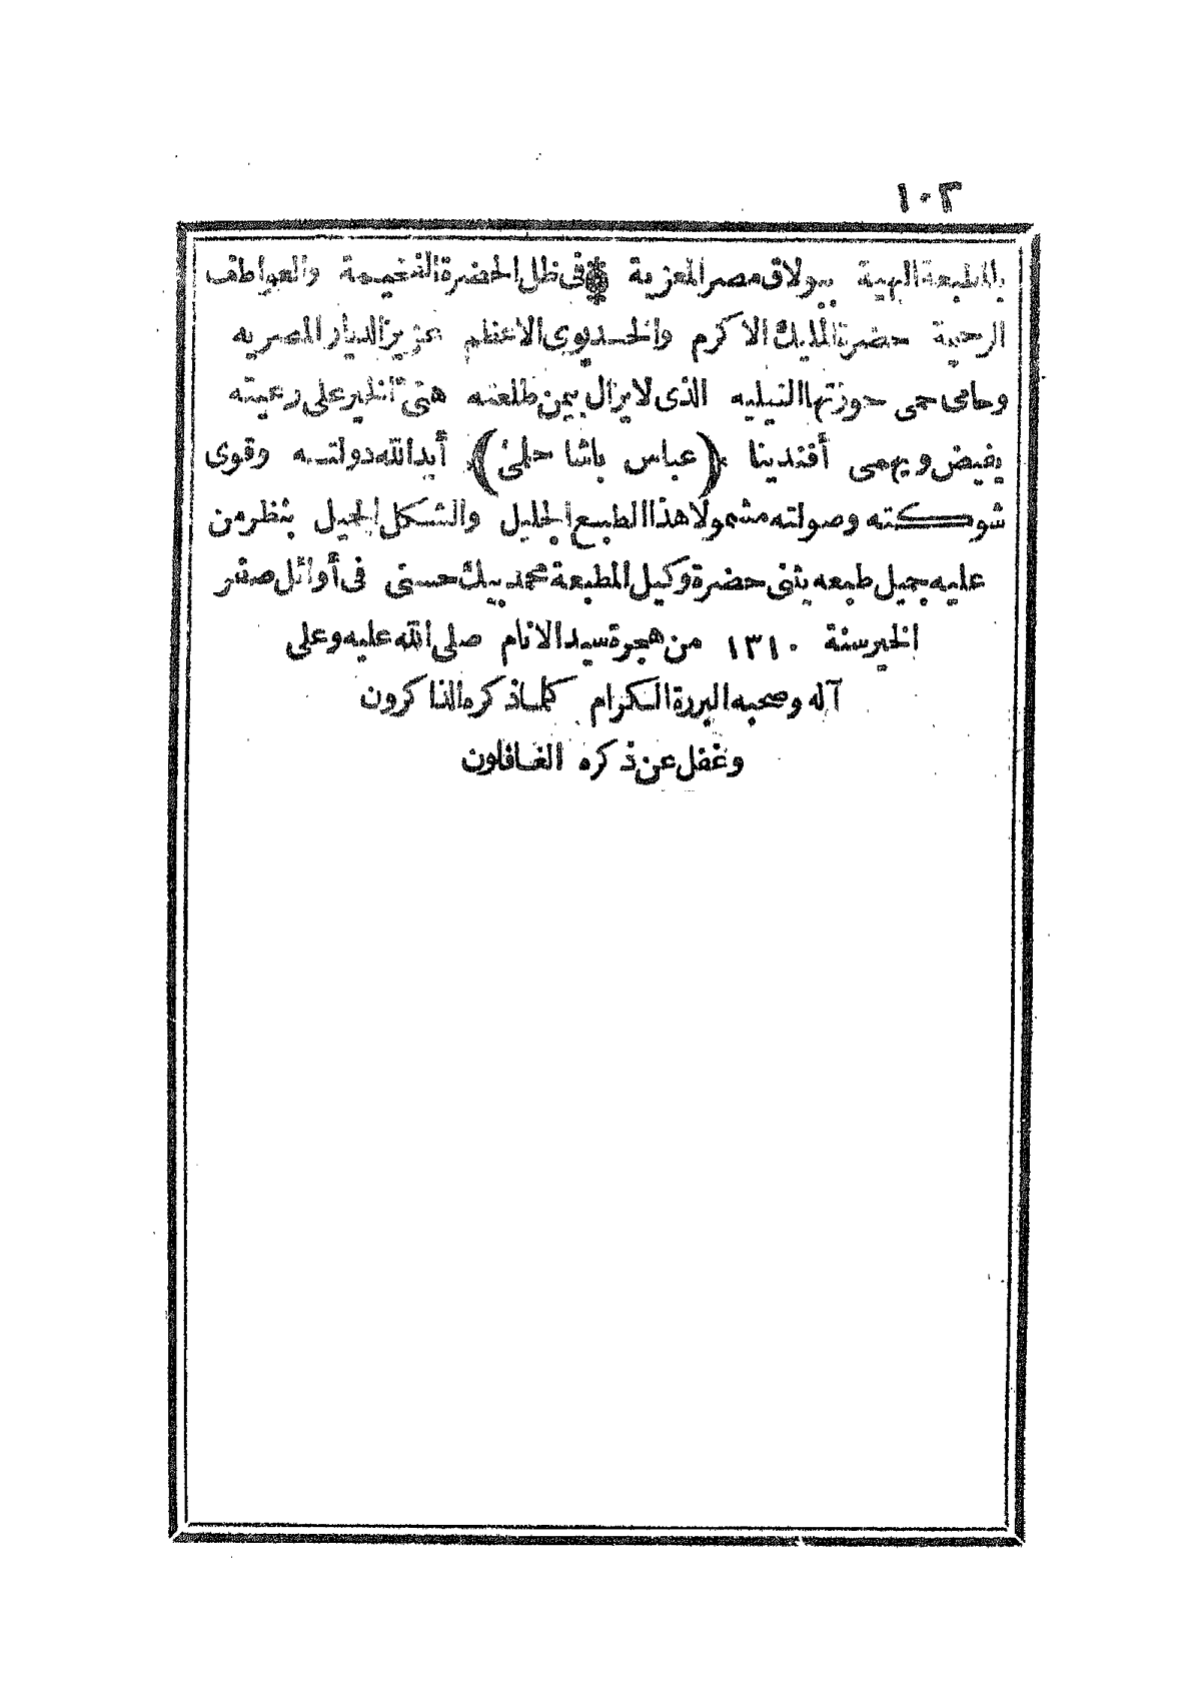 ١٠٢
بالمطبعة البهية ببولاق مصر المعزية ❁ فى ظل الحضرة الفخيمة والعواطف
الرحيمة حضرة المليك الاكرم والخديوى الاعظم عزيز الديار المصريه
وحامى حمى حوزتها النيليه الذى لا يزال بيمن طلعته هتىّ الخير على رعيته
يفيض ويهمى أفندينا (عباس باشا حلمى) أيد الله دولته وقوى
شوكته وصولته مشمولا هذا الطبع الجليل والشكل الجميل بنظر من
عليه جميل طبعه يثنى حضرة وكيل المطبعة محمد بيك حسنى فى أوائل صفر
الخير سنة ١٣١٠ من هجرة سيد الانام صلى الله عليه وعلى
آله وصحبه البررة الكرام كلما ذكره الذاكرون
وغفل عن ذكره الغافلون